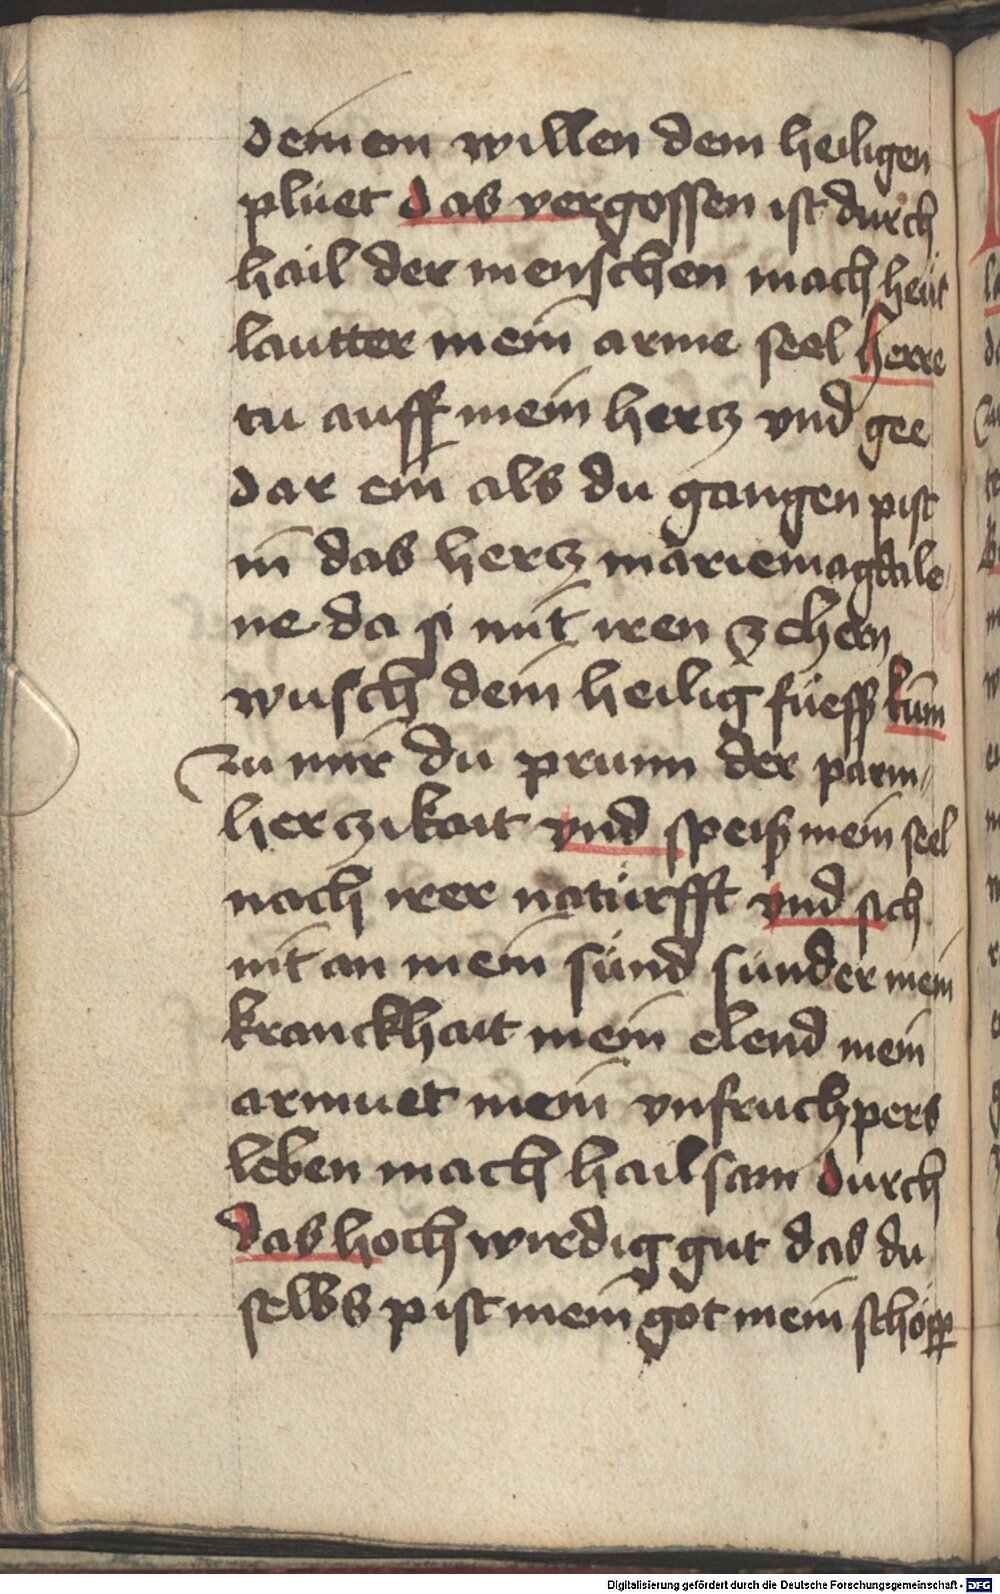 deinem willen dem heiligen
plüet das vergossen ist durch
hail der menschen mach heüt
lautter mein arme seel herre
tu auff mein hertz vnd gee
dar ein als du gangen pist
in das hertz mariemagdale
ne da si mit iren zehern
wusch dein heilig füess kum
zu mir du prunn der parm
hertzikait vnd speiß mein seel
nach irer notürfft vnd sich
nit an mein sünd sunder mein
kranckhait mein elend mein
armuet mein vnfruchpers
leben mach hailsam durch
das hochwirdig gut das du
selbs pist mein got mein schöpp
Digitalisierung gefördert durch die Deutsche Forschungsgemeinschaft - DFG